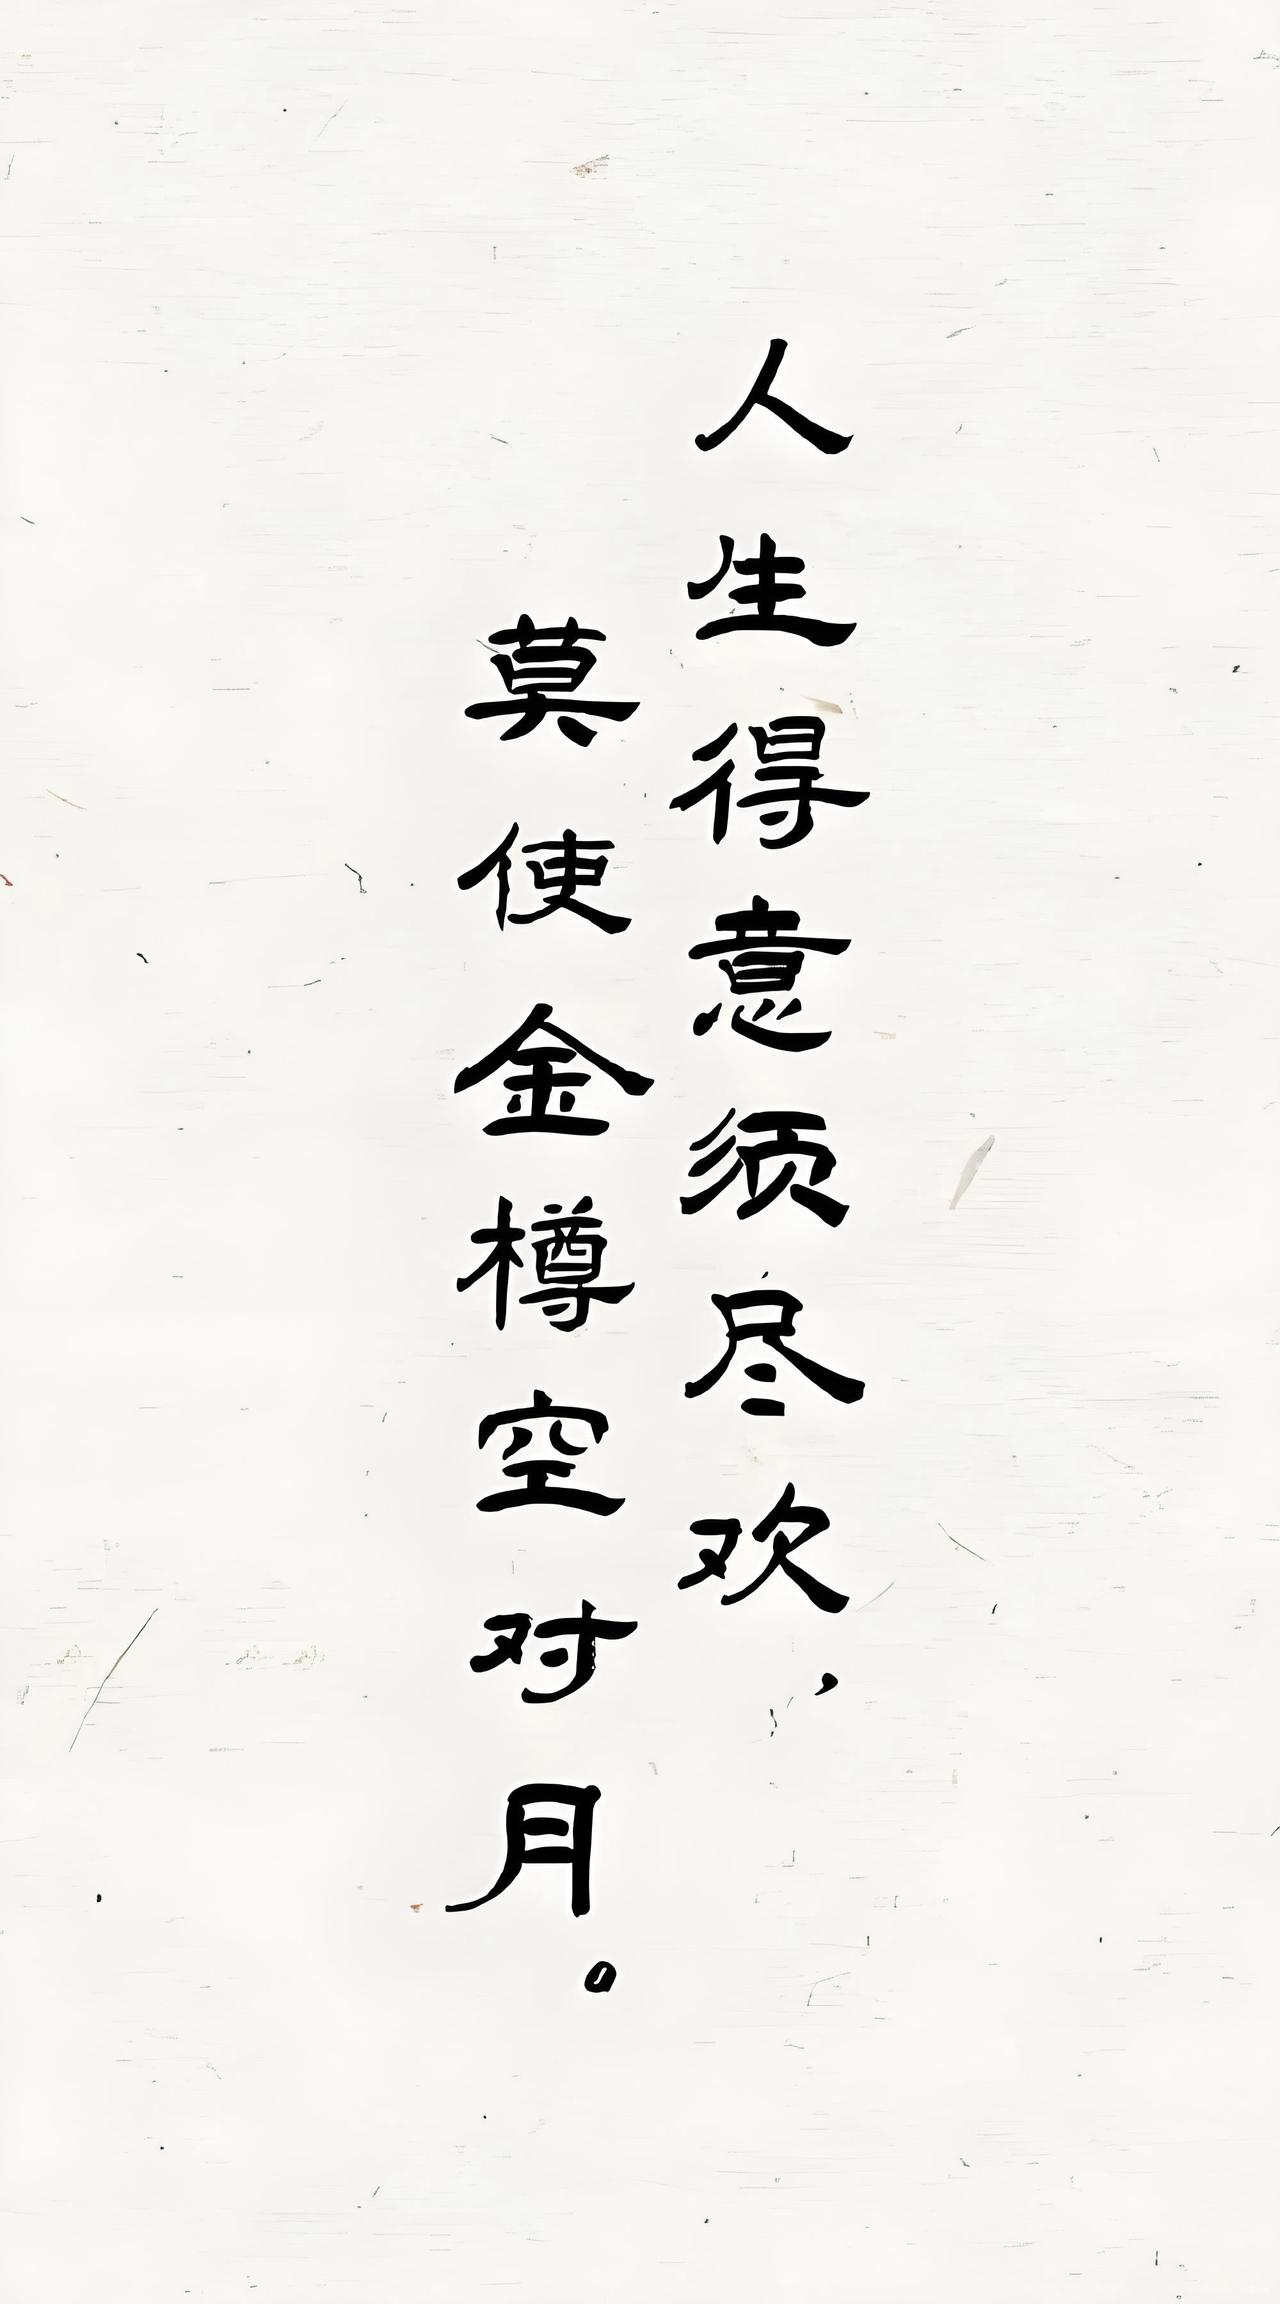 人生得意须尽欢，
莫使金樽空对月。